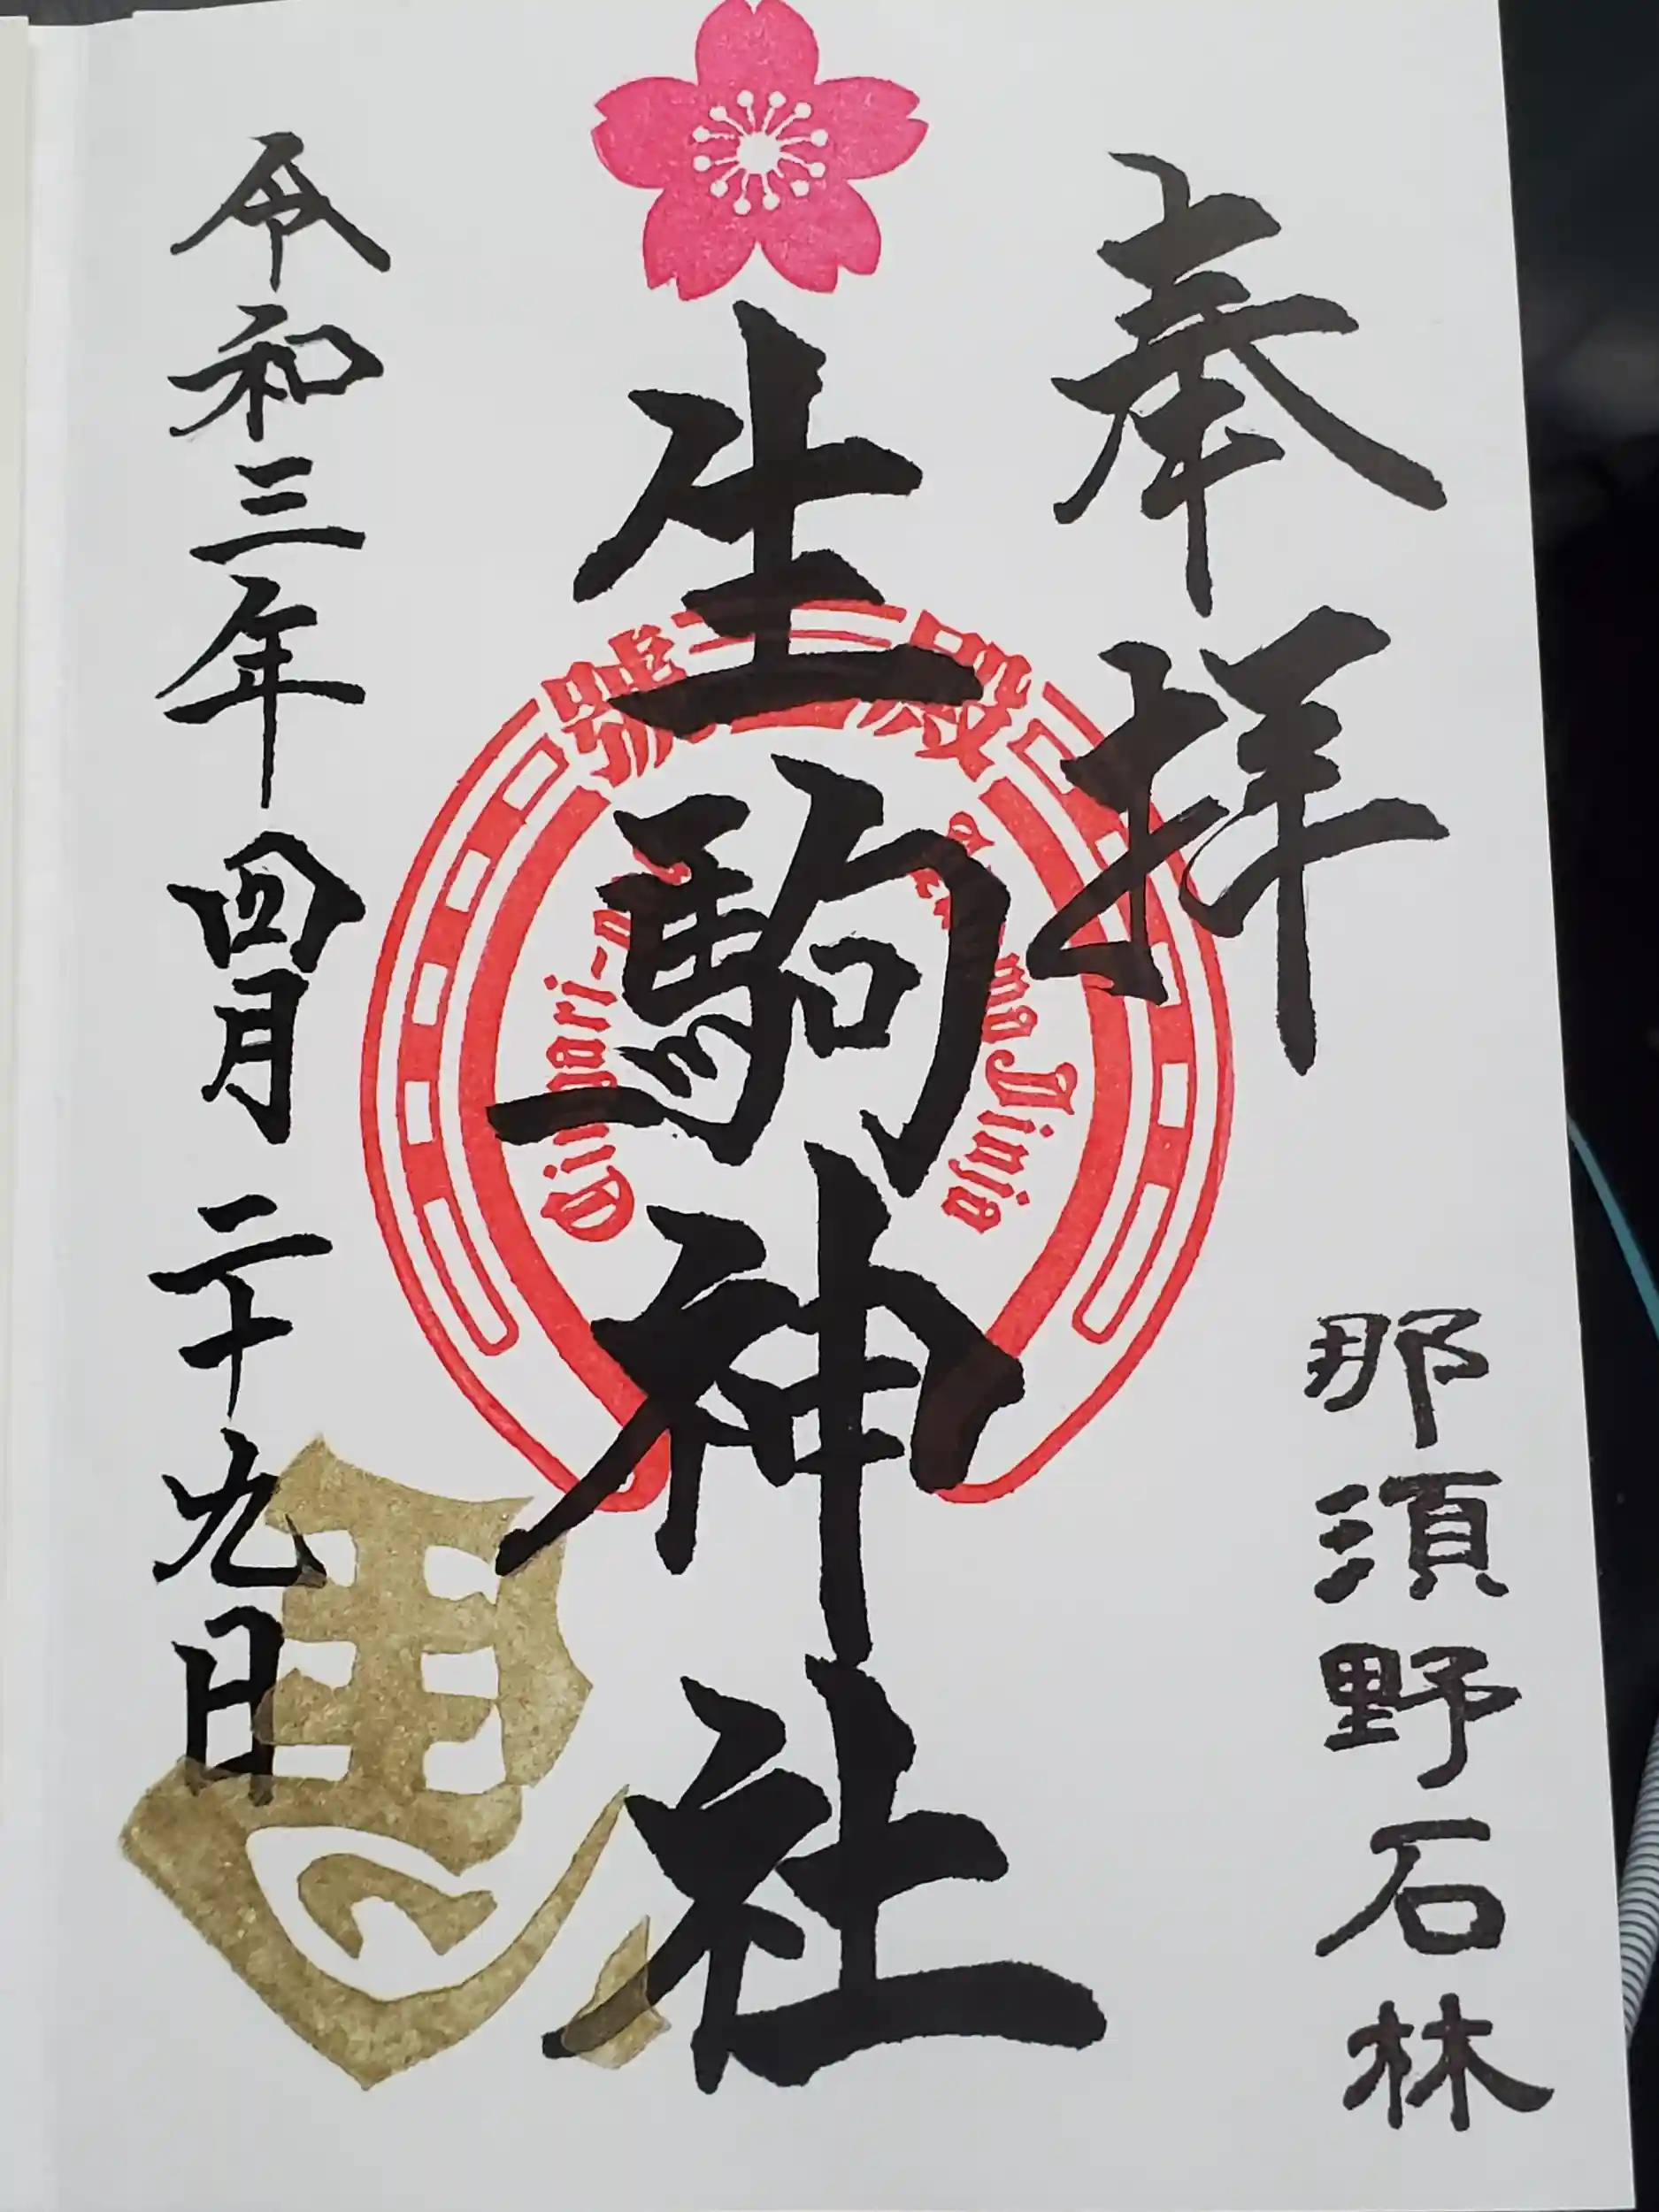 奉拝
那須野石林
生駒神社
號 殿
Jinja
令和三年 四月 二十九日